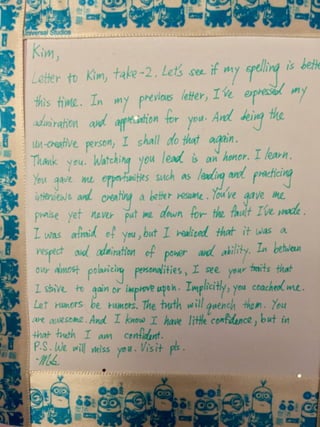 Universal Studios
Kim,
Letter to Kim, take-2. Let's see if my spelling is bette
this time. In my previous letter, I've expressed my
admiration and appreciation for you. And being the
un-creative person, I shall do that again.
Thank you. Watching you lead is an honor. I learn.
You gave me opportunities such as leading and practicing
interviews and creating a better resume. You've gave me
praise yet never put me down for the fault I've made.
I was afraid of you, but I realized that it was a
respect and admiration of power and ability. In between
our almost polarizing personalities, I see your traits that
I strive to gain or improve upon. Implicitly, you coached me.
Let rumors be rumors. The truth will quench them. You
are awesome. And I know I have little confidence, but in
that truth I am confident.
P.S. We will miss you. Visit pls.